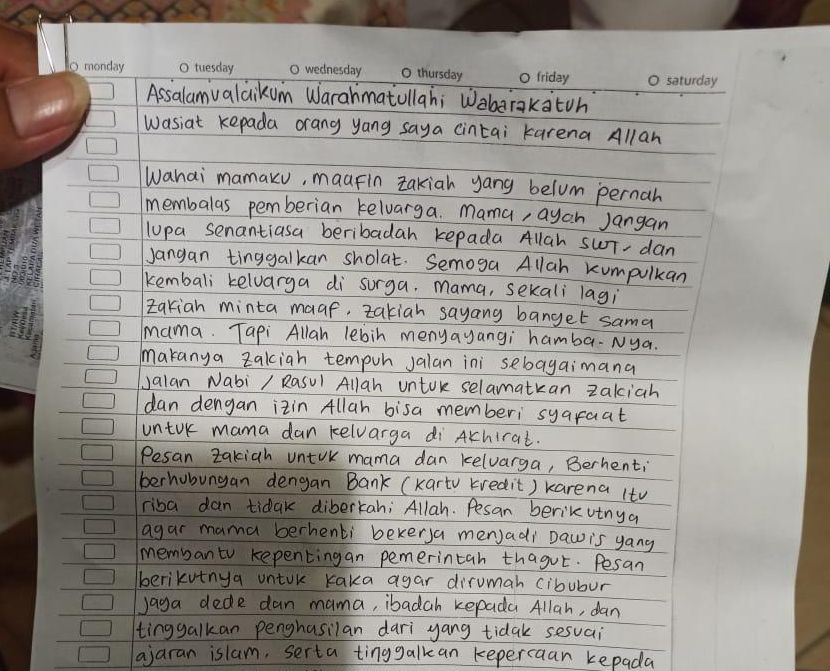 monday tuesday wednesday thursday friday saturday
Assalamualaikum Warahmatullahi Wabarakatuh
Wasiat kepada orang yang saya cintai karena Allah
Wahai mamaku, maafin zakiah yang belum pernah
membalas pemberian keluarga. Mama, ayah jangan
lupa senantiasa beribadah kepada Allah SWT. dan
Jangan tinggalkan sholat. Semoga Allah kumpulkan
kembali keluarga di surga. Mama, sekali lagi
zakiah minta maaf. zakiah sayang banget sama
mama. Tapi Allah lebih menyayangi hamba-Nya.
Makanya zakiah tempuh jalan ini sebagaimana
Jalan Nabi / Rasul Allah untuk selamatkan zakiah
dan dengan izin Allah bisa memberi syafaat
untuk mama dan keluarga di Akhirat.
Pesan zakiah untuk mama dan keluarga, Berhenti
berhubungan dengan Bank (kartu kredit) karena itu
riba dan tidak diberkahi Allah. Pesan berikutnya
agar mama berhenti bekerja menjadi Dawis yang
membantu kepentingan pemerintah thagut. Pesan
berikutnya untuk kaka agar dirumah cibubur
Jaga dede dan mama, ibadah kepada Allah, dan
tinggalkan penghasilan dari yang tidak sesuai
ajaran islam. serta tinggalkan kepercaan kepada